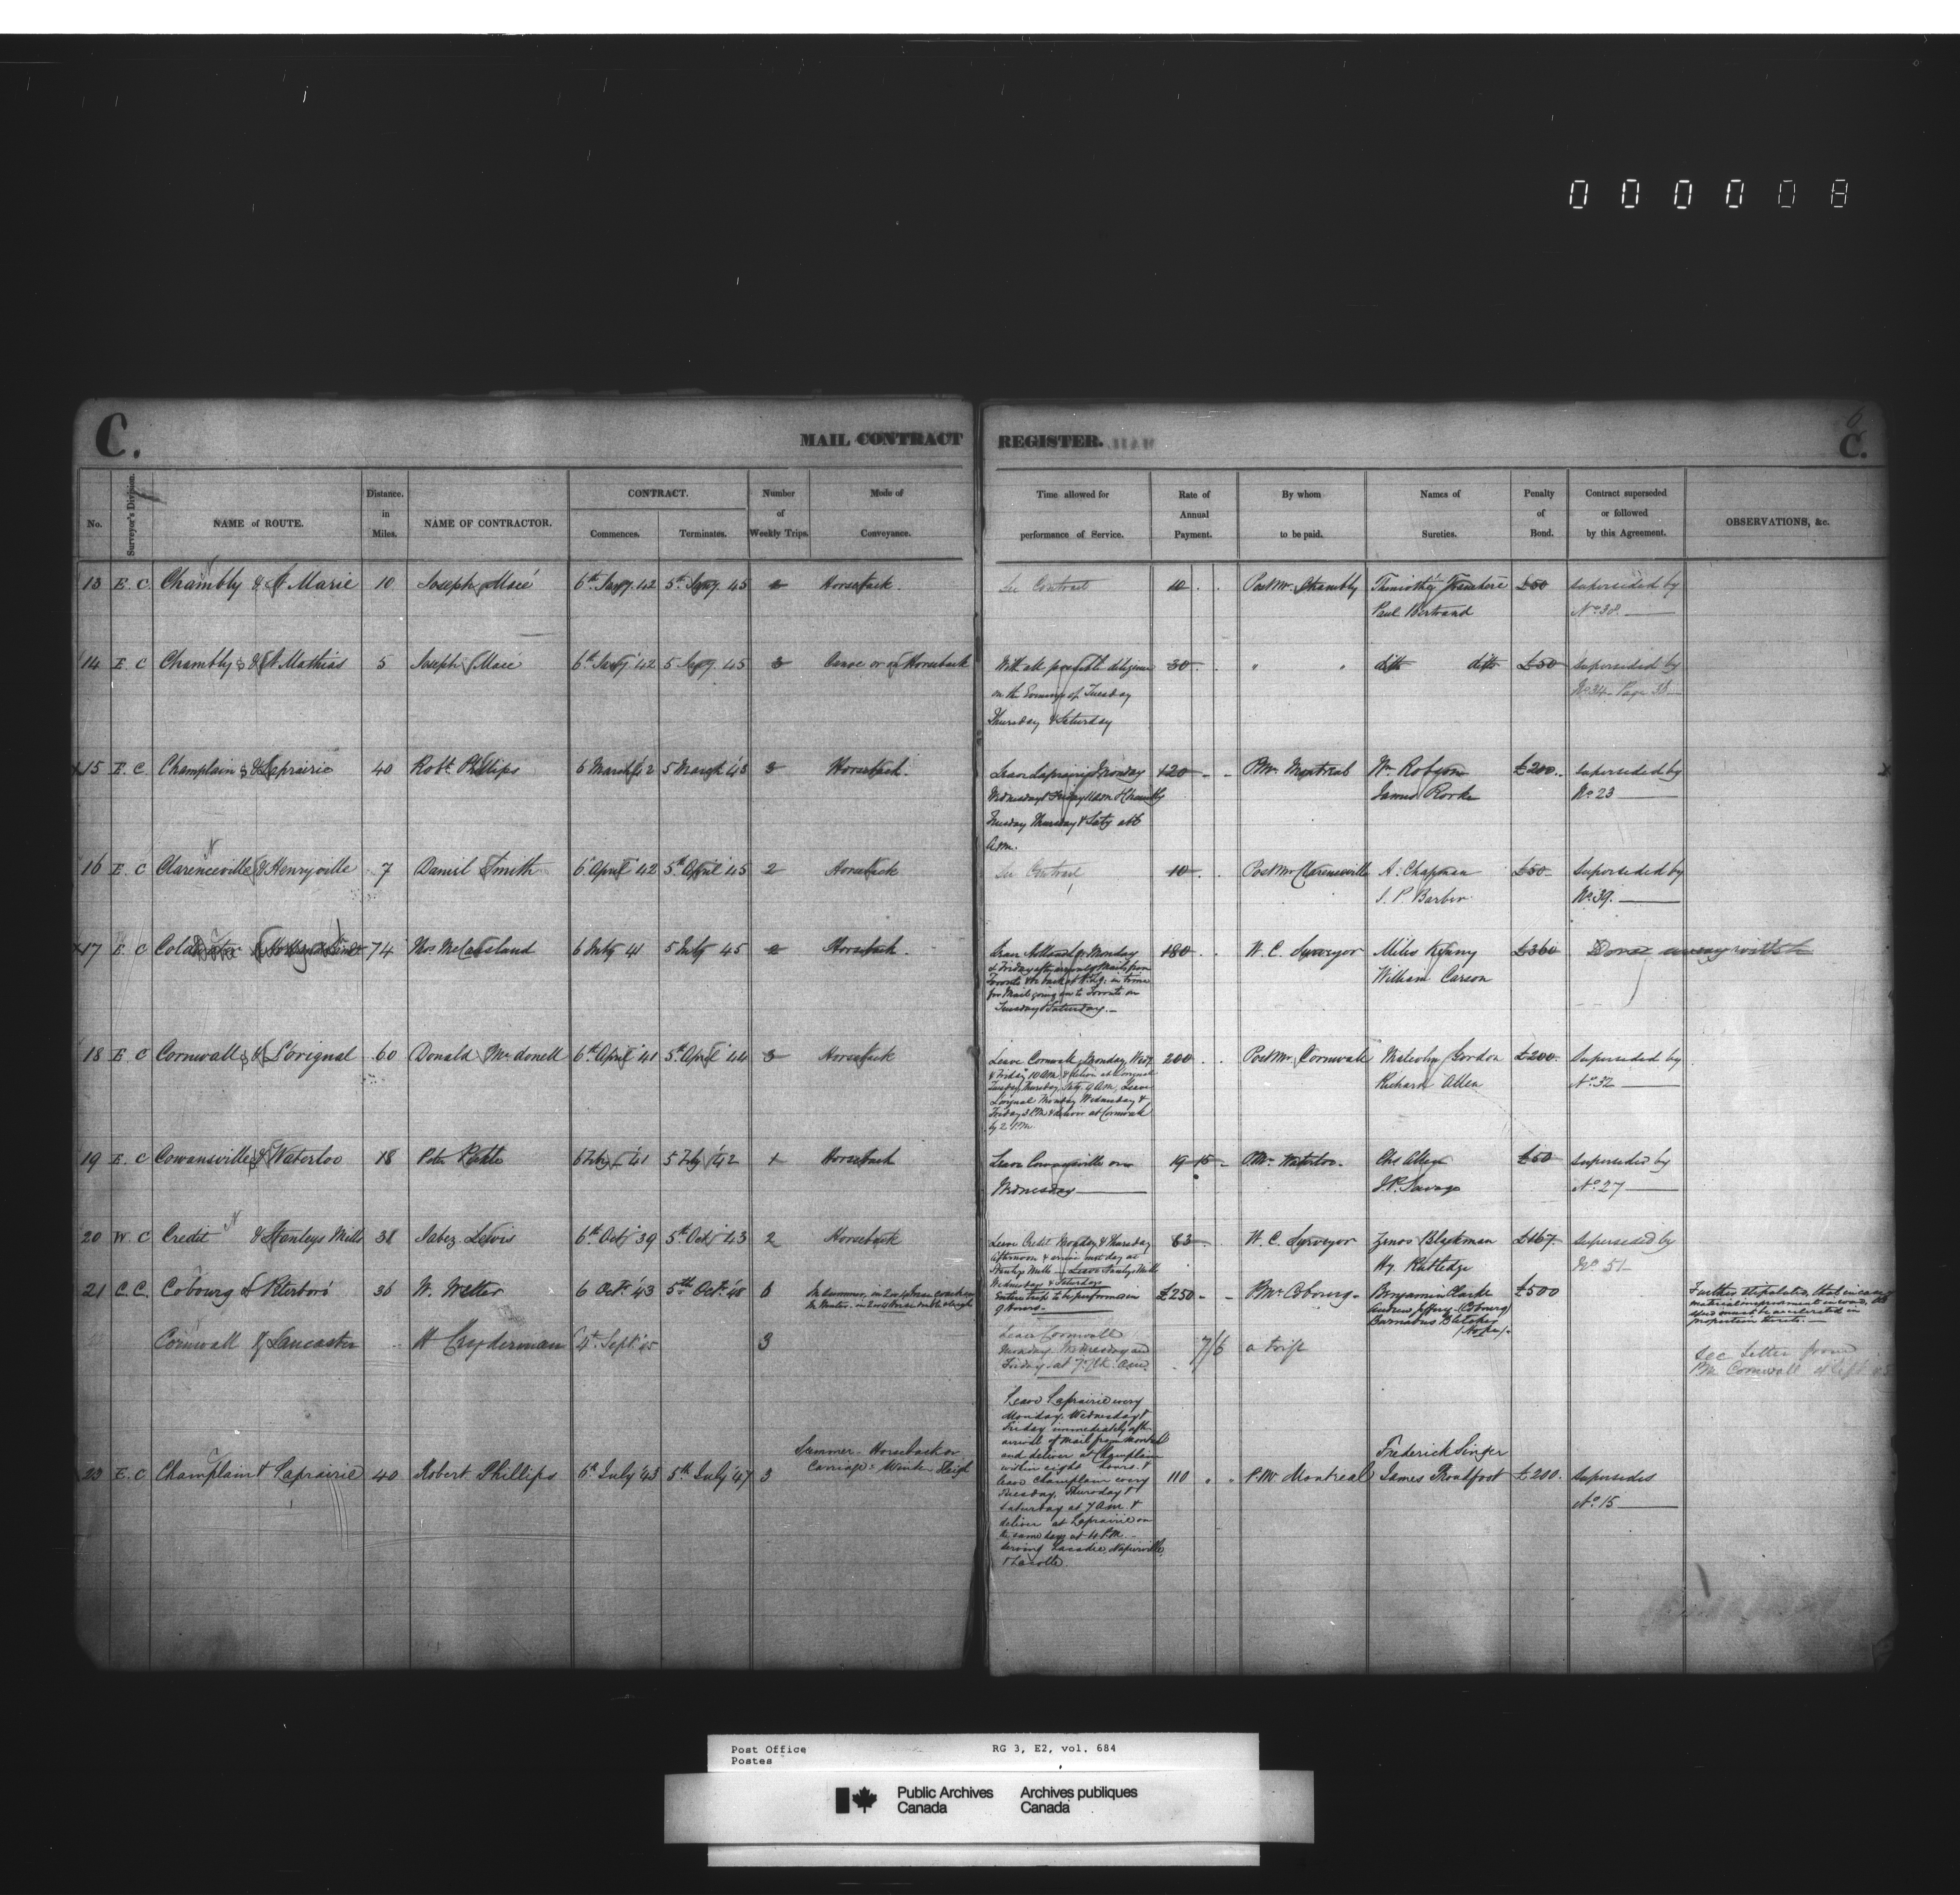 000008
C. MAIL CONTRACT REGISTER. 6 C.
No. Surveyor's Division. NAME of ROUTE. Distance. in Miles. NAME OF CONTRACTOR. CONTRACT. Commences. Terminates. Number of Weekly Trips. Mode of Conveyance. Time allowed for performance of Service. Rate of Annual Payment. By whom to be paid. Names of Sureties. Penalty of Bond. Contract superseded or followed by this Agreement. OBSERVATIONS, &c.
13 E. C Chambly & St Marie 10 Joseph Marié 6th Jany. 42 5th Jany. 45 Horseback See Contract 10 Post Mr. Chambly £50 superseded by
Paul Bertrand No. 38
14 E C Chambly & St Mathias 5 Joseph Marié 6th Jany 42 5 Jany. 45 3 Canoe or on Horseback With all possible diligence 30 " " ditto ditto £50 superseded by
on the Evenings of Tuesday No 34 Page
Thursday & Saturday
15 E. C. Champlain & Laprairie 40 Robt. Phillips 6 March 42 5 March 43 3 Horseback. Leave Laprairie Monday 120 P.Mr. Montreal Wm Robson £200. superseded by
Wednesday & Friday James Rorke No 23
Tuesday Thursday & Saty at 6
A.M.
16 E C Clarenceville & Henryville 7 Daniel Smith 6 April 42 5th April 45 2 Horseback See Contract 10 Post Mr Clarenceville A. Chapman £50 Superseded by
S. P. Barber No. 39.
17 E C 74 6 July 41 5 July 45 2 Horseback. Leave Holland Monday 180 W. C. Surveyor Miles Kenny £360 Done away with
& Friday after arrival of Mail from William Carson
Toronto
for Mail going on to Toronto on
Tuesday & Saturday.
18 E C Cornwall & L'orignal 60 Donald Mcdonell 6th April 41 5th April 44 3 Horseback Leave Cornwall, Monday, Wedy 200 Post Mr. Cornwall Malcolm Gordon £200. Superseded by
& Friday 10 A.M. & deliver at L'orignal Richard Allen No. 32
Tuesday Thursday Saty. 9 A.M. Leave
L'orignal Monday Wednesday &
Friday 3 P.M. & deliver at Cornwall
by 2 P.M.
19 E. C Cowansville & Waterloo 18 41 42 1 Horseback Leave Cowansville on 19 15 P.Mr. Waterloo. Chs Allen £50 superseded by
Wednesday J. P. Savage No. 27
20 W. C Credit & Stanleys Mills 38 Jabez Lewis 6th Oct 39 5th Oct 43 2 Horseback Leave Credit Monday & Thursday 83 W. C. Surveyor Zenos Blackman £167. Superseded by
afternoon & arrive next day at Hy. Rutledge No 51
Stanleys Mills — Leave Stanleys Mills
Wednesdays & Saturdays
21 C. C. Cobourg & Peterboro' 36 W. Weller 6 Oct. 43 5th Oct. 48 6 In Summer, in 2 or 4 horse coach Entire trip to be performed in £250 P.Mr. Cobourg. Benjamin Clarke £500 Further stipulated, that in case of
In Winter. in 2 or 4 horse double sleigh 9 hours. Andrew Jeffrey (Cobourg) material improvement in road, the
Barnabus Bletcher (Hope) speed must be accelerated in
proportion thereto.
Cornwall & Lancaster H Cryderman 4th Sept. 45 3 Leave Cornwall 7/6 a trip See Letter from
Monday Wednesday and P.M. Cornwall
Friday at 7 o'clk a.m.
23 E. C Champlain & Laprairie 40 Robert Phillips 6th July '43 5th July '47 3 Summer - Horseback or
Carriage: Winter Sleigh
Leave Laprairie every
Monday, Wednesday &
Friday immediately aft.
arrival of mail from Montreal
and deliver at Champlain
within eight hours. &
leave Champlain every
Tuesday, Thursday &
Saturday at 7 A.M. &
deliver at Laprairie on
the same days at 4 P.M.
serving Lacadie, Napierville,
& Lacolle.
110 P.Mr Montreal Frederick Singer
James Proudfoot £200. Supersedes
No. 15
Post Office
Postes RG 3, E2, vol. 684
Public Archives
Canada
Archives publiques
Canada